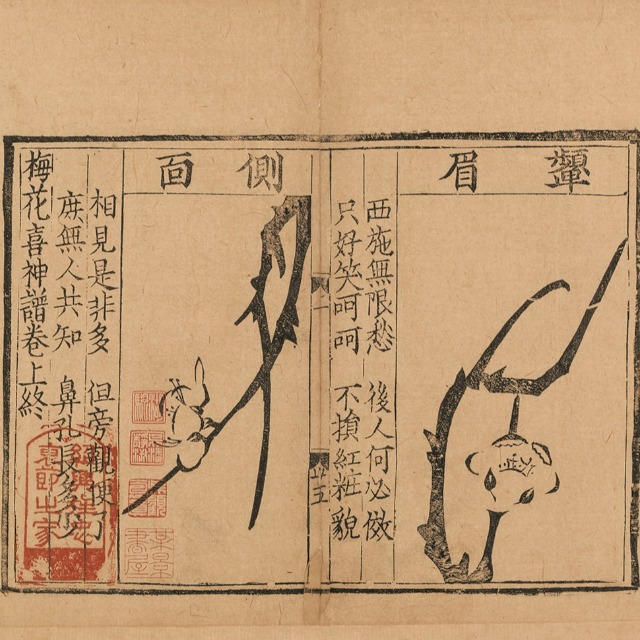 顰眉
西施無限愁　後人何必傚
只好笑呵呵　不損紅粧貌
側面
相見是非多　但旁觀便了
庶無人共知　鼻孔長多少
梅花喜神譜卷上終